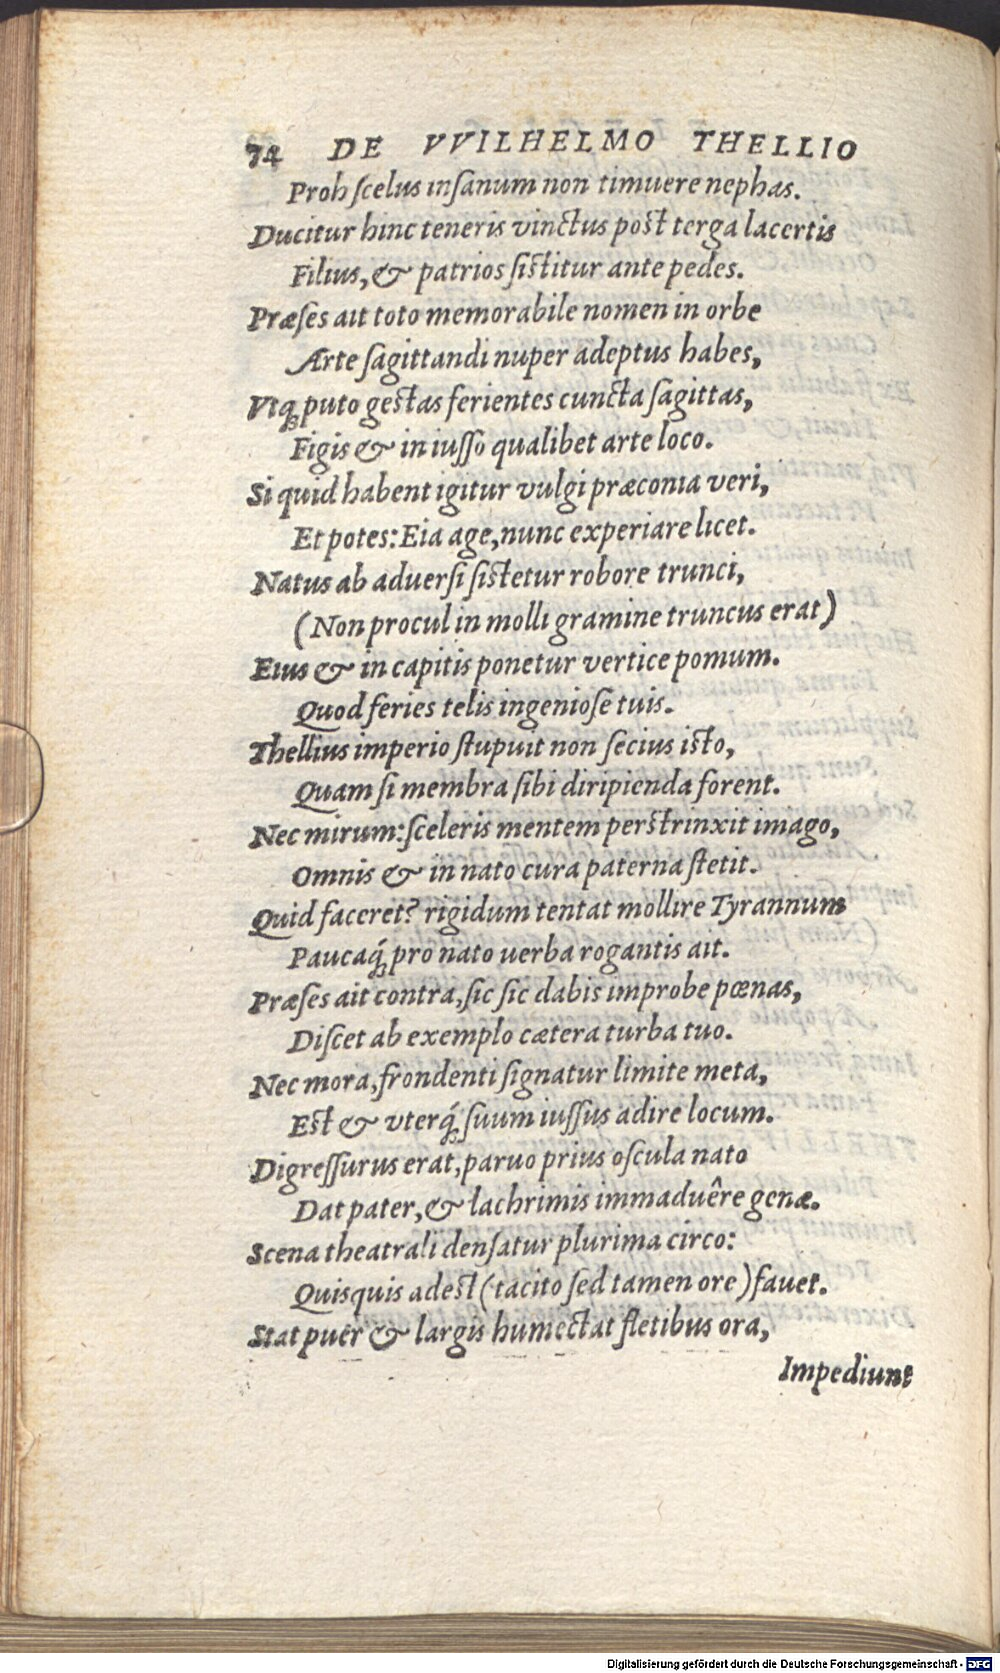 74 DE VVILHELMO THELLIO
Proh scelus insanum non timuere nephas.
Ducitur hinc teneris vinctus post terga lacertis
Filius, & patrios sistitur ante pedes.
Præses ait toto memorabile nomen in orbe
Arte sagittandi nuper adeptus habes,
Vtq́; puto gestas ferientes cuncta sagittas,
Figis & in iusso qualibet arte loco.
Si quid habent igitur vulgi præconia veri,
Et potes: Eia age, nunc experiare licet.
Natus ab aduersi sistetur robore trunci,
(Non procul in molli gramine truncus erat)
Eius & in capitis ponetur vertice pomum.
Quod feries telis ingeniose tuis.
Thellius imperio stupuit non secius isto,
Quam si membra sibi diripienda forent.
Nec mirum: sceleris mentem perstrinxit imago,
Omnis & in nato cura paterna stetit.
Quid faceret? rigidum tentat mollire Tyrannum
Paucaq́; pro nato uerba rogantis ait.
Præses ait contra, sic sic dabis improbe pœnas,
Discet ab exemplo cætera turba tuo.
Nec mora, frondenti signatur limite meta,
Est & vterq́; suum iussus adire locum.
Digressurus erat, paruo prius oscula nato
Dat pater, & lachrimis immaduêre genæ.
Scena theatrali densatur plurima circo:
Quisquis adest (tacito sed tamen ore) fauet.
Stat puer & largis humectat fletibus ora,
Impediunt
Digitalisierung gefördert durch die Deutsche Forschungsgemeinschaft - DFG